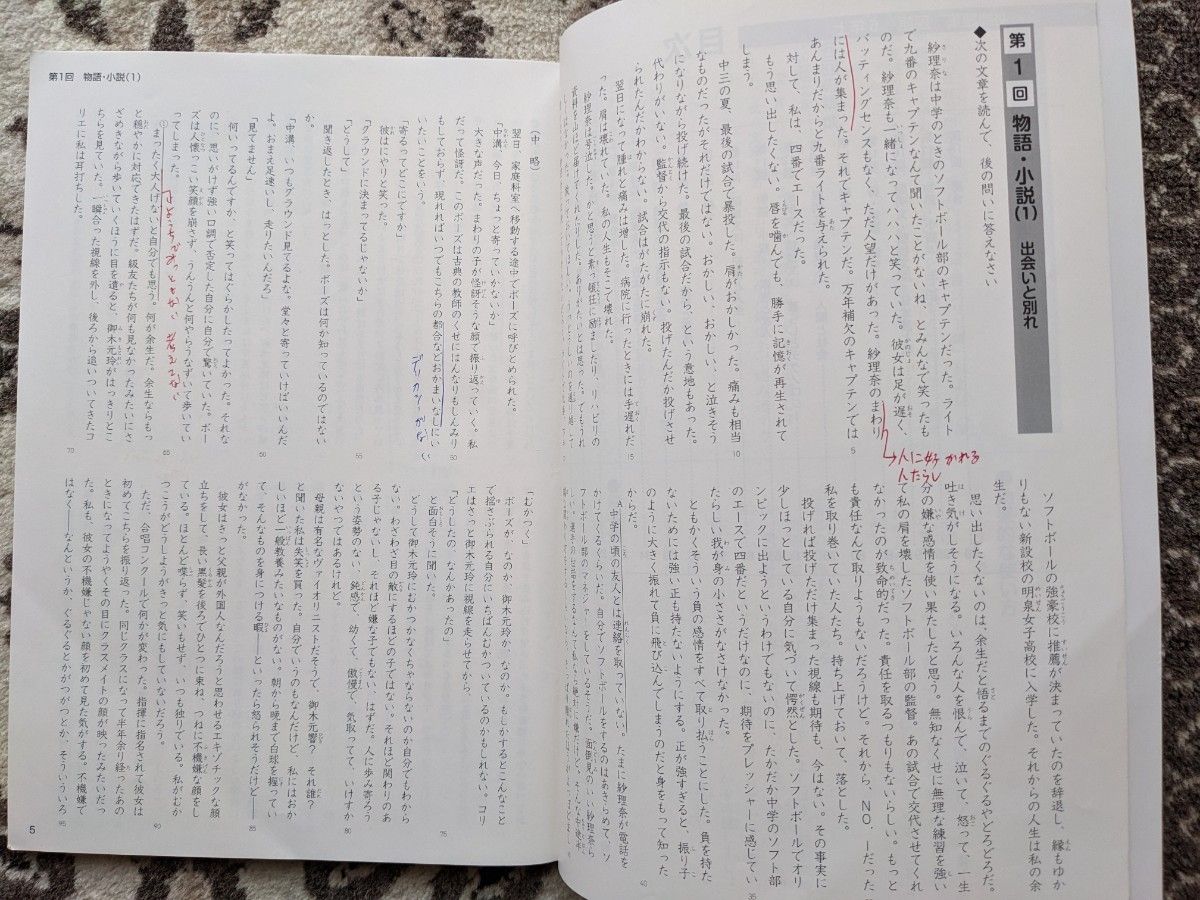 第1回 物語・小説(1) 出会いと別れ
◆次の文章を読んで、後の問いに答えなさい
紗理奈は中学のときのソフトボール部のキャプテンだった。ライト
で九番のキャプテンなんて聞いたことがないね、とみんなで笑ったも
のだ。紗理奈も一緒になってハハハと笑っていた。彼女は足が遅く、
バッティングセンスもなく、ただ人望だけがあった。紗理奈のまわり
には人が集まった。それでキャプテンだ。万年補欠のキャプテンでは
あんまりだからと九番ライトを与えられた。
対して、私は、四番でエースだった。
もう思い出したくない。唇を噛んでも、勝手に記憶が再生されて
しまう。
中三の夏、最後の試合で暴投した。肩がおかしかった。痛みも相当
なものだったがそれだけではない。おかしい、おかしい、と泣きそう
になりながら投げ続けた。最後の試合だから、という意地もあった。
代わりがいない。監督から交代の指示もない。投げたんだか投げさせ
られたんだかわからない。試合はがたがたに崩れた。
翌日になって腫れと痛みは増した。病院に行ったときには手遅れだ
った。肩は壊れていた。私の人生もそこで壊れた。
紗理奈は号泣した。かと思うと素っ頓狂に励ましたり、リハビリの
人に好かれる
人たらし
ソフトボールの強豪校に推薦が決まっていたのを辞退し、縁もゆか
りもない新設校の明泉女子高校に入学した。それからの人生は私の余
生だ。
思い出したくないのは、余生だと悟るまでのぐるぐるやどろどろだ。
吐き気がしそうになる。いろんな人を恨んで、泣いて、怒って、一生
分の嫌な感情を使い果たしたと思う。無知なくせに無理な練習を強い
て私の肩を壊したソフトボール部の監督。あの試合で交代させてくれ
なかったのが致命的だった。責任を取るつもりもないらしい。もっと
も責任なんて取りようもないだろうけど。それから、NO.1だった
私を取り巻いていた人たち。持ち上げておいて、落とした。
投げれば投げただけ集まった視線も期待も、今はない。その事実に
少しほっとしている自分に気づいて愕然とした。ソフトボールでオリ
ンピックに出ようというわけでもないのに、たかだか中学のソフト部
のエースで四番だというだけなのに、期待をプレッシャーに感じてい
たらしい我が身の小ささがなさけなかった。
ともかくそういう負の感情をすべて取り払うことにした。負を持た
ないためには強い正も持たないようにする。正が強すぎると、振り子
のように大きく振れて負に飛び込んでしまうのだと身をもって知った
からだ。
A 中学の頃の友人とは連絡を取っていない。たまに紗理奈が電話を
かけてくるくらいだ。自分でソフトボールをするのはあきらめて、ソ
フトボール部のマネジャーをしているそうだ。面倒見のいい紗理奈ら
第1回 物語・小説(1)
（中略）
翌日、家庭科室へ移動する途中でボーズに呼びとめられた。
「中溝、今日、ちょっと寄っていかないか」
大きな声だった。まわりの子が怪訝そうな顔で振り返っていく。私
だって怪訝だ。このボーズは古典の教師のくせにはんなりもしんみり
もしておらず、現れればいつでもこちらの都合などおかまいなしにい
いたいことをいう。
デリカシーがない
「寄るってどこにですか」
彼はにやりと笑った。
「グラウンドに決まってるじゃないか」
「どうして」
聞き返したとき、はっとした。ボーズは何か知っているのではない
か。
「中溝、いつもグラウンド見てるよな。堂々と寄っていけばいいんだ
よ、おまえ足速いし、走りたいんだろ」
「見てません」
何いってるんですか、と笑ってはぐらかしたってよかった。それな
のに、思いがけず強い口調で否定した自分に自分で驚いていた。ボー
ズは人懐っこい笑顔を崩さず、うんうんと何やらうなずいて歩いてい
ってしまった。
① まったく大人げないと自分でも思う。何が余生だ。余生ならもっ
と穏やかに対応できたはずだ。級友たちが何も見なかったみたいにさ
ざめきながら歩いていくほうに目を遣ると、御木元玲がはっきりとこ
ちらを見ていた。一瞬合った視線を外し、後ろから追いついてきたコ
リエに私は耳打ちした。
「むかつく」
ボーズが、なのか、御木元玲が、なのか。もしかするとこんなこと
で揺さぶられる自分にいちばんむかついているのかもしれない。コリ
エはさっと御木元玲に視線を走らせてから、
「どうしたの、なんかあったの」
と面白そうに聞いた。
どうして御木元玲にむかつかなくちゃならないのか自分でもわから
ない。わざわざ目の敵にするほどの子ではない。それほど関わりのあ
る子じゃないし、それほど嫌な子でもない、はずだ。人に歩み寄ろう
という姿勢のない、鈍感で、幼くて、傲慢で、気取ってて、いけすか
ないやつではあるけれど。
母親は有名なヴァイオリニストだそうで、御木元響？ それ誰？
と聞いた私は失笑を買った。自分でいうのもなんだけど、私にはおか
しいほど一般教養みたいなものがない。朝から晩まで白球を握ってい
て、そんなものを身につける暇――といったら怒られそうだけど――
がなかった。
彼女はきっと父親が外国人なんだろうと思わせるエキゾチックな顔
立ちをして、長い黒髪を後ろでひとつに束ね、つねに不機嫌な顔をし
ている。ほとんど喋らず、笑いもせず、いつも独りでいる。私がむか
つこうがどうしようがきっと気にもしていないだろう。
ただ、合唱コンクールで何かが変わった。指揮に指名されて彼女は
初めてこちらを振り返った。同じクラスになって半年余り経ったあの
ときになってようやくその目にクラスメイトの顔が映ったみたいだっ
た。私も、彼女の不機嫌じゃない顔を初めて見た気がする。不機嫌で
はなく――なんというか、ぐるぐるとかがつがつとか、そういういろ
5